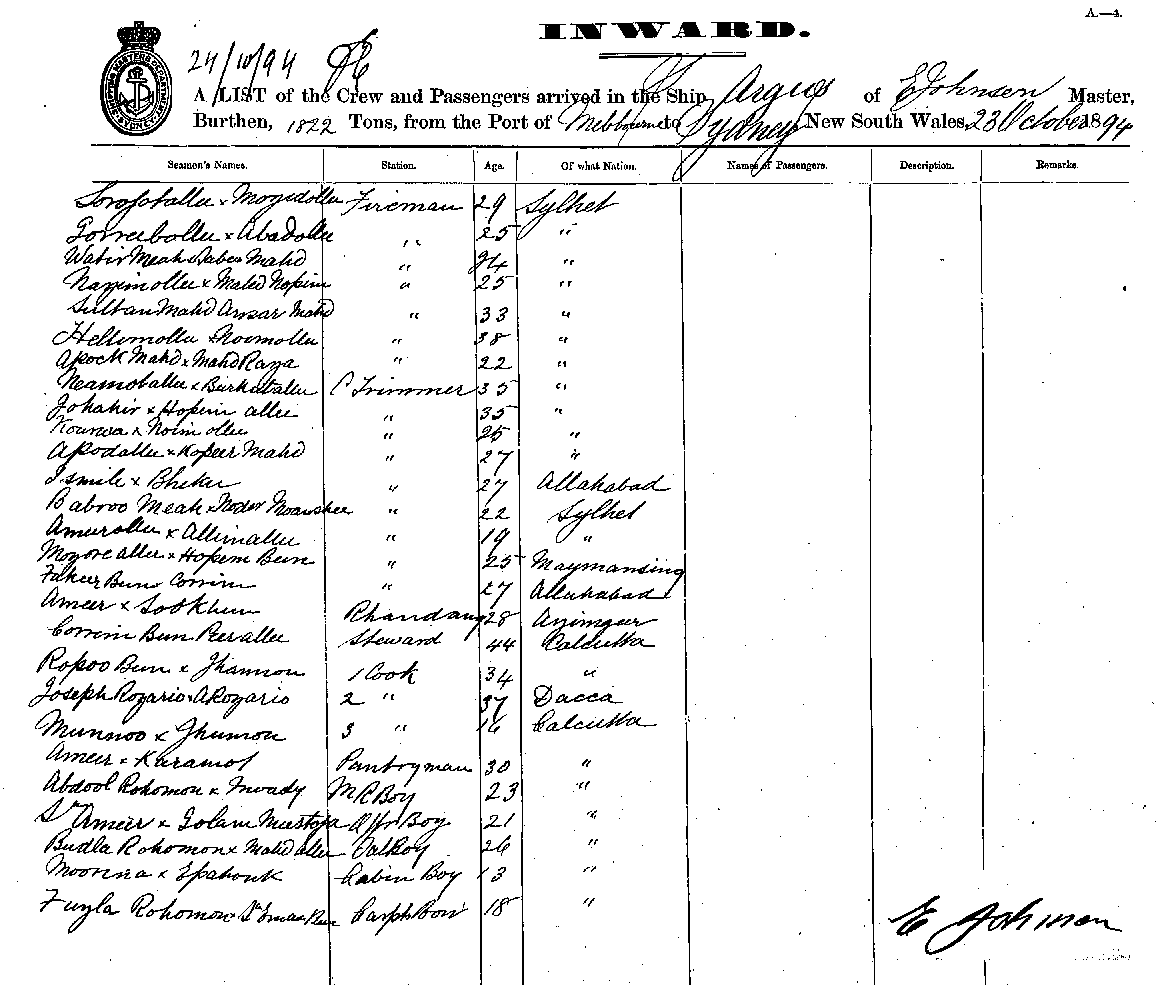 A.—4.
INWARD.
24/10/94
A LIST of the Crew and Passengers arrived in the Ship Argus of E Johnson Master,
Burthen, 1822 Tons, from the Port of Melbourne to Sydney New South Wales, 23 October 1894
Seamen's Names. Station. Age. Of what Nation. Names of Passengers. Description. Remarks.
Fireman 29 Sylhet
Gorreebollee x Abadollee " 25 "
Meah Mahd " 24 "
Nazimollee x Mahd Hosein " 25 "
Sultan Mahd Ansar Mahd " 33 "
" 38 "
Mahd x Mahd Raza " 22 "
Neamotallee x Burkutallee C Trimmer 35 "
x Hosein allee " 35 "
x Noim ollee " 25 "
x Mahd " 27 "
Ismile x Bheka " 27 Allahabad
Babroo Meah x " 22 Sylhet
Ameerollee x Allimallee " 19 "
x Hosein Bux " 25 Maymansing
Fakeer Bux Corrim " 27 Allahabad
Ameer x Sookhun 28
Corrim Bux Peerallee Steward 44 Calcutta
Bux x Jhammon 1 Cook 34 "
Joseph Rozario x A Rozario 2 " 37 Dacca
Munnoo x Jhumon 3 " 16 Calcutta
Ameer x Karamot Pantryman 30 "
Abdool Rohomon x Mr Boy 23 "
Sk Ameer x Golam Mustofa Offr Boy 21 "
Budla Rohomon x Mahd allee 26 "
Moonna x Cabin Boy 13 "
Fuzla Rohomon 18 "
E Johnson